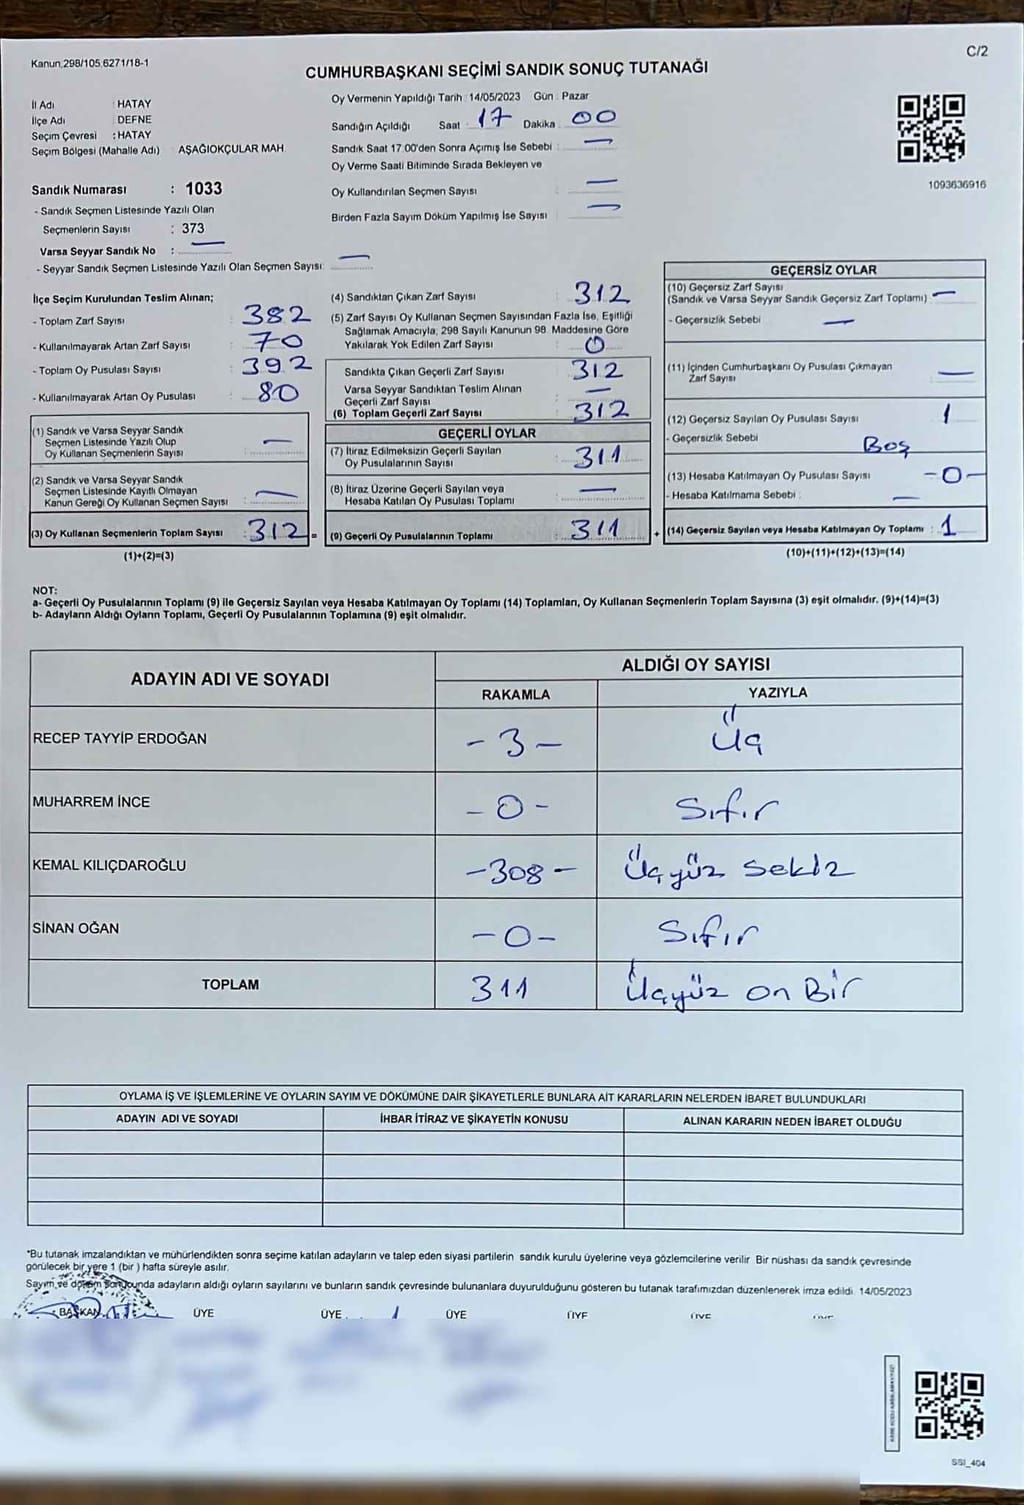 Kanun,298/105,6271/18-1
C/2
CUMHURBAŞKANI SEÇİMİ SANDIK SONUÇ TUTANAĞI
İl Adı : HATAY
İlçe Adı : DEFNE
Seçim Çevresi : HATAY
Seçim Bölgesi (Mahalle Adı) : AŞAĞIOKÇULAR MAH.
Sandık Numarası : 1033
- Sandık Seçmen Listesinde Yazılı Olan
Seçmenlerin Sayısı : 373
Varsa Seyyar Sandık No : —
- Seyyar Sandık Seçmen Listesinde Yazılı Olan Seçmen Sayısı: —
Oy Vermenin Yapıldığı Tarih : 14/05/2023 Gün : Pazar
Sandığın Açıldığı Saat : 17 Dakika : 00
Sandık Saat 17:00'den Sonra Açımış İse Sebebi : —
Oy Verme Saati Bitiminde Sırada Bekleyen ve
Oy Kullandırılan Seçmen Sayısı : —
Birden Fazla Sayım Döküm Yapılmış İse Sayısı : —
1093636916
İlçe Seçim Kurulundan Teslim Alınan;
- Toplam Zarf Sayısı : 382
- Kullanılmayarak Artan Zarf Sayısı : 70
- Toplam Oy Pusulası Sayısı : 392
- Kullanılmayarak Artan Oy Pusulası : 80
(1) Sandık ve Varsa Seyyar Sandık
Seçmen Listesinde Yazılı Olup
Oy Kullanan Seçmenlerin Sayısı : —
(2) Sandık ve Varsa Seyyar Sandık
Seçmen Listesinde Kayıtlı Olmayan
Kanun Gereği Oy Kullanan Seçmen Sayısı : —
(3) Oy Kullanan Seçmenlerin Toplam Sayısı : 312 =
(1)+(2)=(3)
(4) Sandıktan Çıkan Zarf Sayısı : 312
(5) Zarf Sayısı Oy Kullanan Seçmen Sayısından Fazla İse, Eşitliği
Sağlamak Amacıyla, 298 Sayılı Kanunun 98. Maddesine Göre
Yakılarak Yok Edilen Zarf Sayısı : 0
Sandıkta Çıkan Geçerli Zarf Sayısı : 312
Varsa Seyyar Sandıktan Teslim Alınan
Geçerli Zarf Sayısı : —
(6) Toplam Geçerli Zarf Sayısı : 312
GEÇERLİ OYLAR
(7) İtiraz Edilmeksizin Geçerli Sayılan
Oy Pusulalarının Sayısı : 311
(8) İtiraz Üzerine Geçerli Sayılan veya
Hesaba Katılan Oy Pusulası Toplamı : —
(9) Geçerli Oy Pusulalarının Toplamı : 311 +
GEÇERSİZ OYLAR
(10) Geçersiz Zarf Sayısı :
(Sandık ve Varsa Seyyar Sandık Geçersiz Zarf Toplamı) —
- Geçersizlik Sebebi : —
(11) İçinden Cumhurbaşkanı Oy Pusulası Çıkmayan
Zarf Sayısı : —
(12) Geçersiz Sayılan Oy Pusulası Sayısı : 1
- Geçersizlik Sebebi : Boş
(13) Hesaba Katılmayan Oy Pusulası Sayısı : -0-
- Hesaba Katılmama Sebebi : —
(14) Geçersiz Sayılan veya Hesaba Katılmayan Oy Toplamı : 1
(10)+(11)+(12)+(13)=(14)
NOT:
a- Geçerli Oy Pusulalarının Toplamı (9) ile Geçersiz Sayılan veya Hesaba Katılmayan Oy Toplamı (14) Toplamları, Oy Kullanan Seçmenlerin Toplam Sayısına (3) eşit olmalıdır. (9)+(14)=(3)
b- Adayların Aldığı Oyların Toplamı, Geçerli Oy Pusulalarının Toplamına (9) eşit olmalıdır.
ADAYIN ADI VE SOYADI ALDIĞI OY SAYISI
RAKAMLA YAZIYLA
RECEP TAYYİP ERDOĞAN -3- Üç
MUHARREM İNCE -0- Sıfır
KEMAL KILIÇDAROĞLU -308- Üçyüz Sekiz
SİNAN OĞAN -0- Sıfır
TOPLAM 311 Üçyüz on Bir
OYLAMA İŞ VE İŞLEMLERİNE VE OYLARIN SAYIM VE DÖKÜMÜNE DAİR ŞİKAYETLERLE BUNLARA AİT KARARLARIN NELERDEN İBARET BULUNDUKLARI
ADAYIN ADI VE SOYADI İHBAR İTİRAZ VE ŞİKAYETİN KONUSU ALINAN KARARIN NEDEN İBARET OLDUĞU
*Bu tutanak imzalandıktan ve mühürlendikten sonra seçime katılan adayların ve talep eden siyasi partilerin sandık kurulu üyelerine veya gözlemcilerine verilir. Bir nüshası da sandık çevresinde
görülecek bir yere 1 (bir) hafta süreyle asılır.
Sayım ve döküm sonucunda adayların aldığı oyların sayılarını ve bunların sandık çevresinde bulunanlara duyurulduğunu gösteren bu tutanak tarafımızdan düzenlenerek imza edildi. 14/05/2023
BAŞKAN ÜYE ÜYE ÜYE ÜYE ÜYE ÜYE
SSI_404